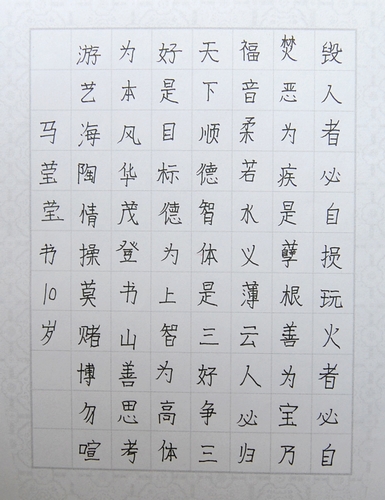 毁人者必自损玩火者必自
焚恶为疾是孽根善为宝乃
福音柔若水义薄云人必归
天下顺德智体是三好争三
好是目标德为上智为高体
为本风华茂登书山善思考
游艺海陶情操莫赌博勿喧
马莹莹书10岁